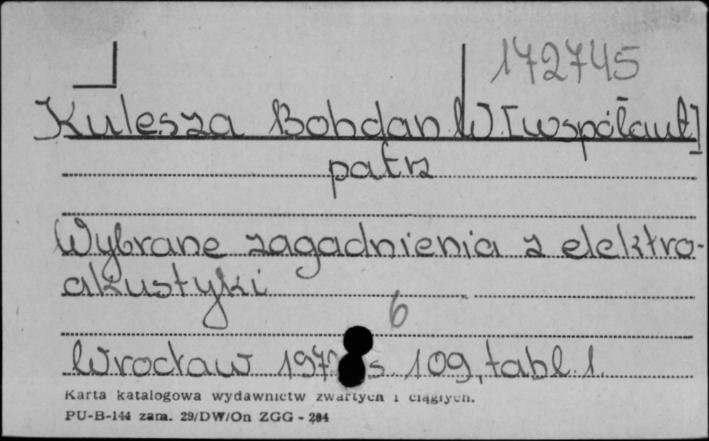 172745
Kulesza Bohdan W. [współaut]
patrz
Wybrane zagadnienia z elektro-
akustyki
6
Wrocław s 109, tabl 1.
Karta katalogowa wydawnictw zwartych i ciągłych.
PU-B-144 zam. 29/DW/On ZGG - 284